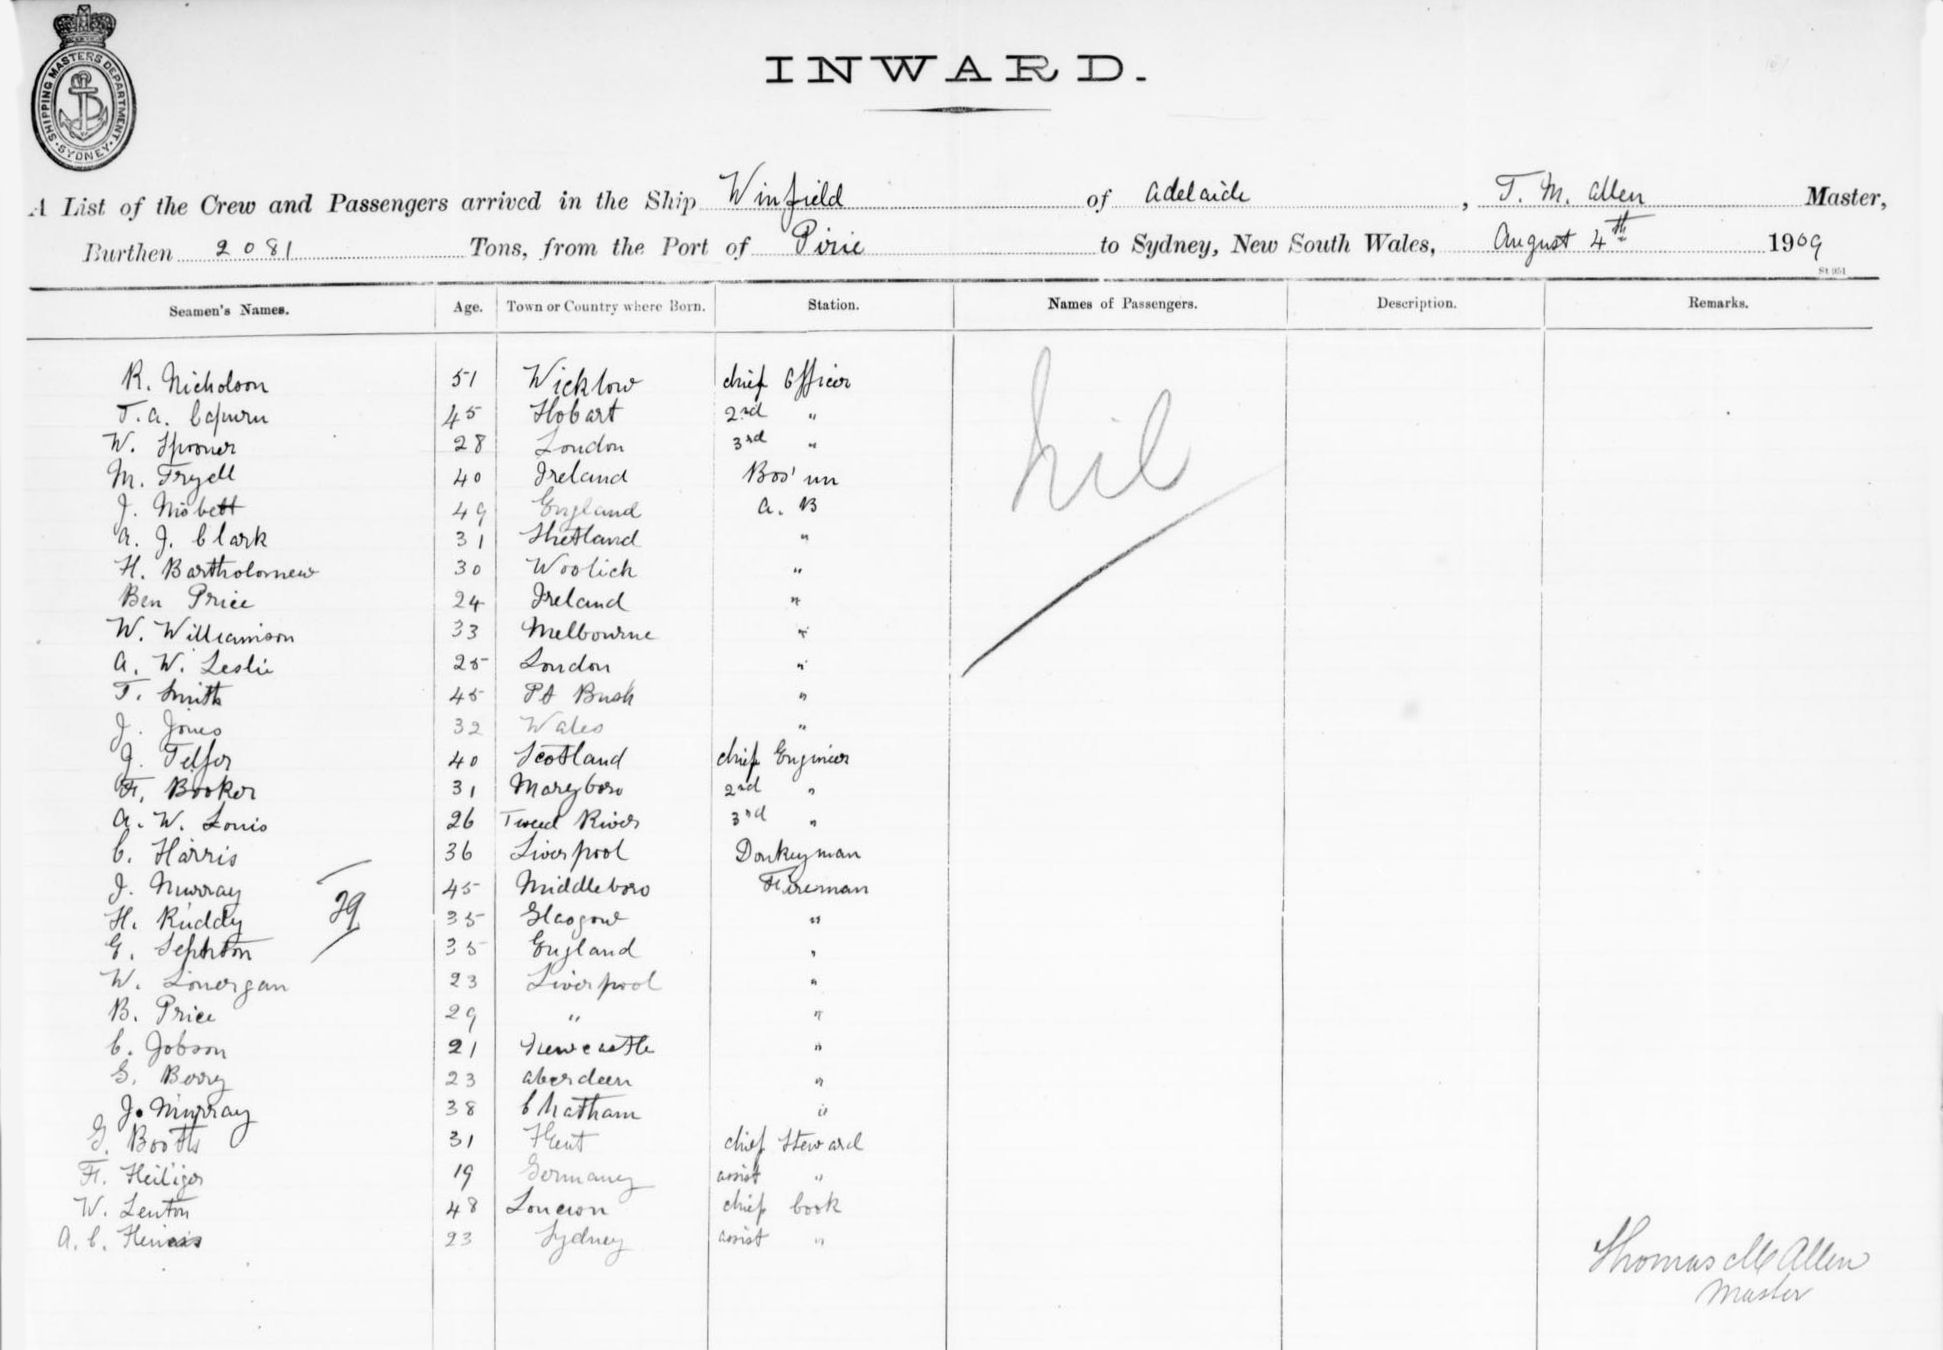 SHIPPING MASTERS DEPARTMENT
SYDNEY
INWARD.
A List of the Crew and Passengers arrived in the Ship Winfield of Adelaide, T. M. Allen Master,
Burthen 2081 Tons, from the Port of Pirie to Sydney, New South Wales, August 4th 1909
St 951
Seamen's Names. Age. Town or Country where Born. Station. Names of Passengers. Description. Remarks.
R. Nicholson 51 Wicklow chief Officer
T. A. 45 Hobart 2nd "
W. Spooner 28 London 3rd "
M. Fryell 40 Ireland Bos'un
J. Nisbett 49 England A. B
A. J. Clark 31 Shetland "
H. Bartholomew 30 Woolich "
Ben Price 24 Ireland "
W. Williamson 33 Melbourne "
A. W. Leslie 25 London "
T. Smith 45 Pt Bush "
J. Jones 32 Wales "
J. Telfer 40 Scotland chief Engineer
F. Booker 31 Maryboro 2nd "
A. W. Louis 26 Tweed River 3rd "
C. Harris 36 Liverpool Donkeyman
J. Murray 45 Middleboro Fireman
H. Ruddy 35 Glasgow "
E. Sephton 35 England "
W. Linergan 23 Liverpool "
B. Price 29 " "
C. Jobson 21 Newcastle "
G. Berry 23 Aberdeen "
J. Murray 38 Chatham "
G. Booth 31 Kent chief Steward
F. Heiliger 19 Germany assist "
W. Lenton 48 London chief Cook
A. C. 23 Sydney assist "
nil
29
Thomas M Allen
Master